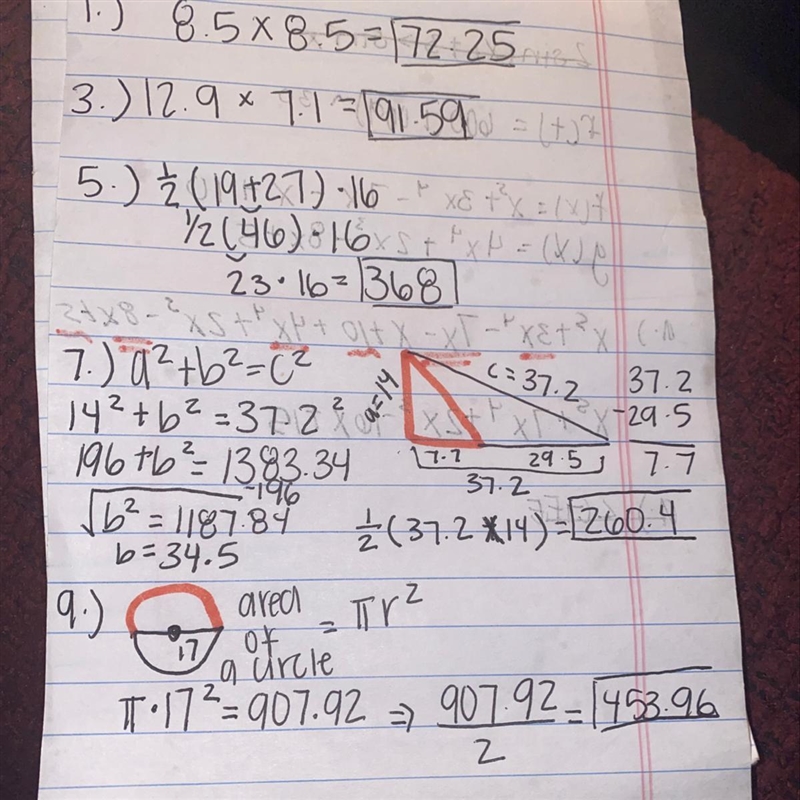 1.) 8.5 x 8.5 = 72.25
3.) 12.9 x 7.1 = 91.59
5.) ½(19+27)·16
1/2(46)·16
23·16 = 368
7.) a²+b²=c²
14²+b²=37.2²
196+b²=1383.34
-196
√b²=1187.84
b=34.5
a=14
c=37.2
7.7 29.5
37.2
37.2
-29.5
7.7
½(37.2 x 14) = 260.4
9.) 17 area of a circle = πr²
π·17²=907.92 ⇒ 907.92/2 = 453.96